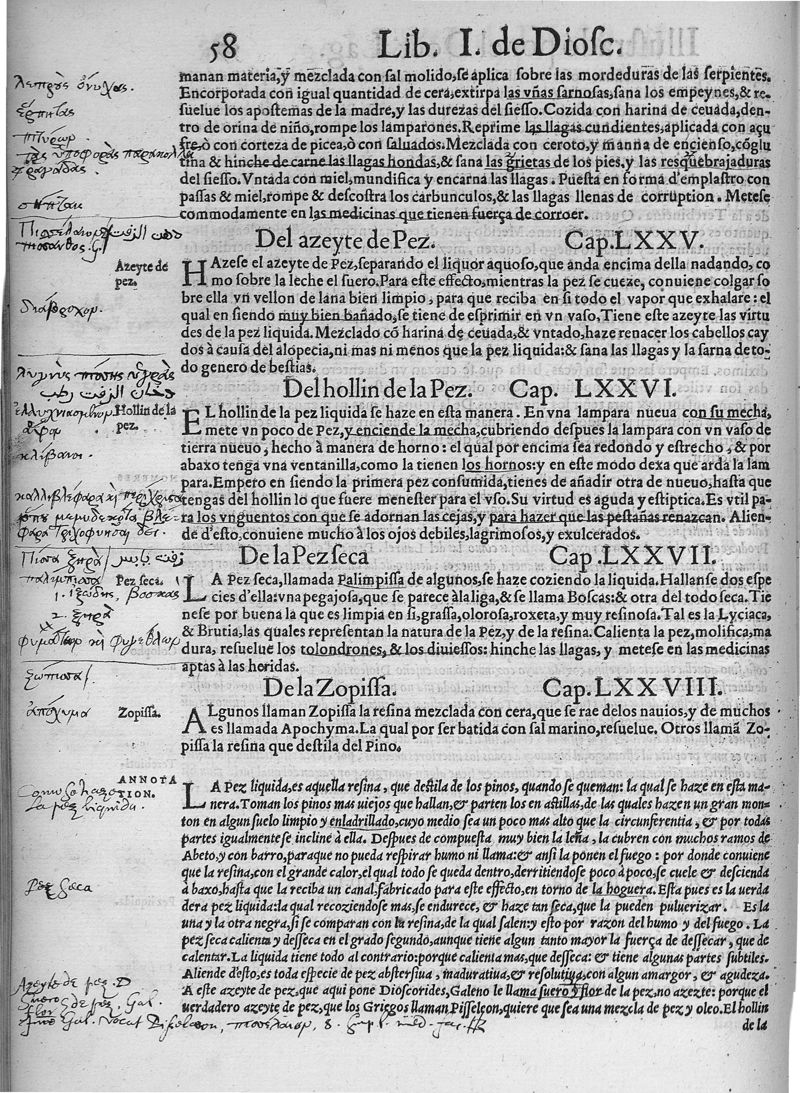 58 Lib. I. de Diosc.
manan materia, y mezclada con sal molido, se aplica sobre las mordeduras de las serpientes.
Encorporada con igual quantidad de cera, extirpa las vñas sarnosas, sana los empeynes, & re-
suelue los apostemas de la madre, y las durezas del siesso. Cozida con harina de ceuada, den-
tro de orina de niño, rompe los lamparones. Reprime las llagas cundientes, aplicada con açu
fre, ò con corteza de picea, ò con saluados. Mezclada con ceroto, y manna de encienso, cõglu
tina & hinche de carne las llagas hondas, & sana las grietas de los pies, y las resquebrajaduras
del siesso. Vntada con miel, mundifica y encarna las llagas. Puesta en forma d'emplastro con
passas & miel, rompe & descostra los carbunculos, & las llagas llenas de corruption. Metese
commodamente en las medicinas que tienen fuerça de corroer.
Del azeyte de Pez. Cap. LXXV.
Azeyte de
pez.
HAzese el azeyte de Pez, separando el liquor aquoso, que anda encima della nadando, co
mo sobre la leche el suero. Para este effecto, mientras la pez se cueze, conuiene colgar so
bre ella vn vellon de lana bien limpio, para que reciba en si todo el vapor que exhalare: el
qual en siendo muy bien bañado, se tiene de esprimir en vn vaso. Tiene este azeyte las virtu
des de la pez liquida. Mezclado cõ harina de ceuada, & vntado, haze renacer los cabellos cay
dos à causa del alopecia, ni mas ni menos que la pez liquida: & sana las llagas y la sarna de to-
do genero de bestias.
Del hollin de la Pez. Cap. LXXVI.
Hollin de la
pez.
EL hollin de la pez liquida se haze en esta manera. En vna lampara nueua con su mecha,
mete vn poco de Pez, y enciende la mecha, cubriendo despues la lampara con vn vaso de
tierra nueuo, hecho à manera de horno: el qual por encima sea redondo y estrecho, & por
abaxo tenga vna ventanilla, como la tienen los hornos: y en este modo dexa que arda la lam
para. Empero en siendo la primera pez consumida, tienes de añadir otra de nueuo, hasta que
tengas del hollin lo que fuere menester para el vso. Su virtud es aguda y estiptica. Es vtil pa-
ra los vnguentos con que se adornan las cejas, y para hazer que las pestañas renazcan. Alien-
de d'esto, conuiene mucho à los ojos debiles, lagrimosos, y exulcerados.
De la Pez seca Cap. LXXVII.
Pez seca.
LA Pez seca, llamada Palimpissa de algunos, se haze coziendo la liquida. Hallanse dos espe
cies d'ella: vna pegajosa, que se parece à la liga, & se llama Boscas: & otra del todo seca. Tie
nese por buena la que es limpia en si, grassa, olorosa, roxeta, y muy resinosa. Tal es la Lyciaca,
& Brutia, las quales representan la natura de la Pez, y de la resina. Calienta la pez, molifica, ma
dura, resuelue los tolondrones, & los diuiessos: hinche las llagas, y metese en las medicinas
aptas à las heridas.
De la Zopissa. Cap. LXXVIII.
Zopissa.
ALgunos llaman Zopissa la resina mezclada con cera, que se rae delos nauios, y de muchos
es llamada Apochyma. La qual por ser batida con sal marino, resuelue. Otros llamã Zo-
pissa la resina que destila del Pino.
ANNOTA
TION.
LA Pez liquida, es aquella resina, que destila de los pinos, quando se queman: la qual se haze en esta ma-
nera. Toman los pinos mas viejos que hallan, & parten los en astillas, de las quales hazen un gran mon-
ton en algun suelo limpio y enladrillado, cuyo medio sea un poco mas alto que la circunferentia, & por todas
partes igualmente se incline à ella. Despues de compuesta muy bien la leña, la cubren con muchos ramos de
Abeto, y con barro, para que no pueda respirar humo ni llama: & ansi la ponen el fuego: por donde conuiene
que la resina, con el grande calor, el qual todo se queda dentro, derritiendose poco à poco, se cuele & descienda
à baxo, hasta que la reciba un canal, fabricado para este effecto, en torno de la hoguera. Esta pues es la uerda
dera pez liquida: la qual recoziendose mas, se endurece, & haze tan seca, que la pueden puluerizar. Es la
una y la otra negra, si se comparan con la resina, de la qual salen: y esto por razon del humo y del fuego. La
pez seca calienta y desseca en el grado segundo, aunque tiene algun tanto mayor la fuerça de dessecar, que de
calentar. La liquida tiene todo al contrario: porque calienta mas, que desseca: & tiene algunas partes subtiles.
Aliende d'esto, es toda especie de pez abstersiua, maduratiua, & resolutiua, con algun amargor, & agudeza.
A este azeyte de pez, que aqui pone Dioscorides, Galeno le llama suero y flor de la pez, no azeyte: porque el
verdadero azeyte de pez, que los Griegos llaman Pisseleon, quiere que sea una mezcla de pez y oleo. El hollin
de la
Pez seca
Azeyte de pez. D